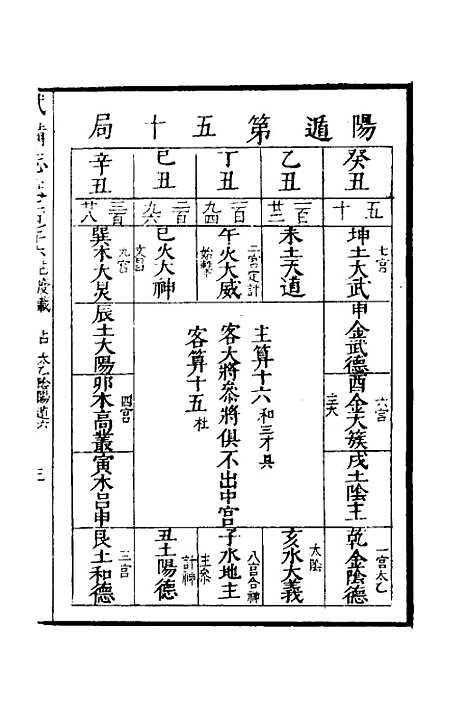 陽遁第五十局
癸丑
乙丑
丁丑
己丑
辛丑
五十
一百廿二
一百九四
二百九六
三百廿八
七宮
坤土大武
申金武德
六宮
酉金太簇
主大
戌土陰主
一宮太乙
乾金陰德
未土天道
太陰
亥水大義
二宮定計
午火大威
始擊
主算十六和三才具
客大將參將俱不出中宮
客算十五杜
八宮合神
子水地主
主參
巳火大神
文昌
計神
丑土陽德
九宮
巽木大炅
辰土太陽
四宮
卯木高叢
寅木呂申
三宮
艮土和德
占 太乙陰陽遁六
三